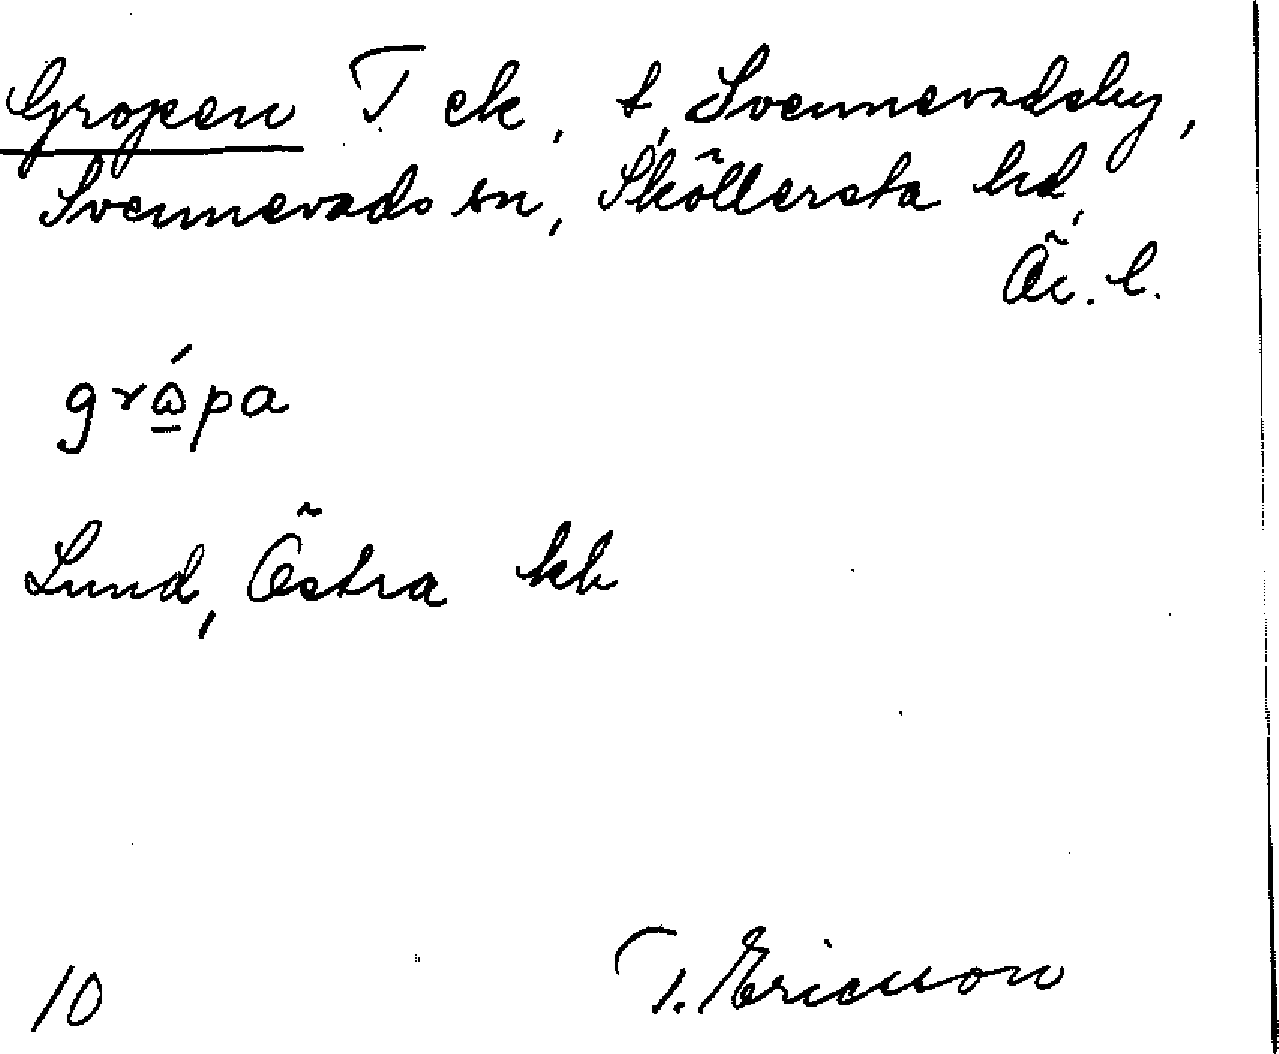 Gropen T ek, t, Svennevadsby,
Svennevads sn, Sköllersta hd,
Ör. l.
grώ̲pa
Lund, Östra kk
10 T. Ericsson